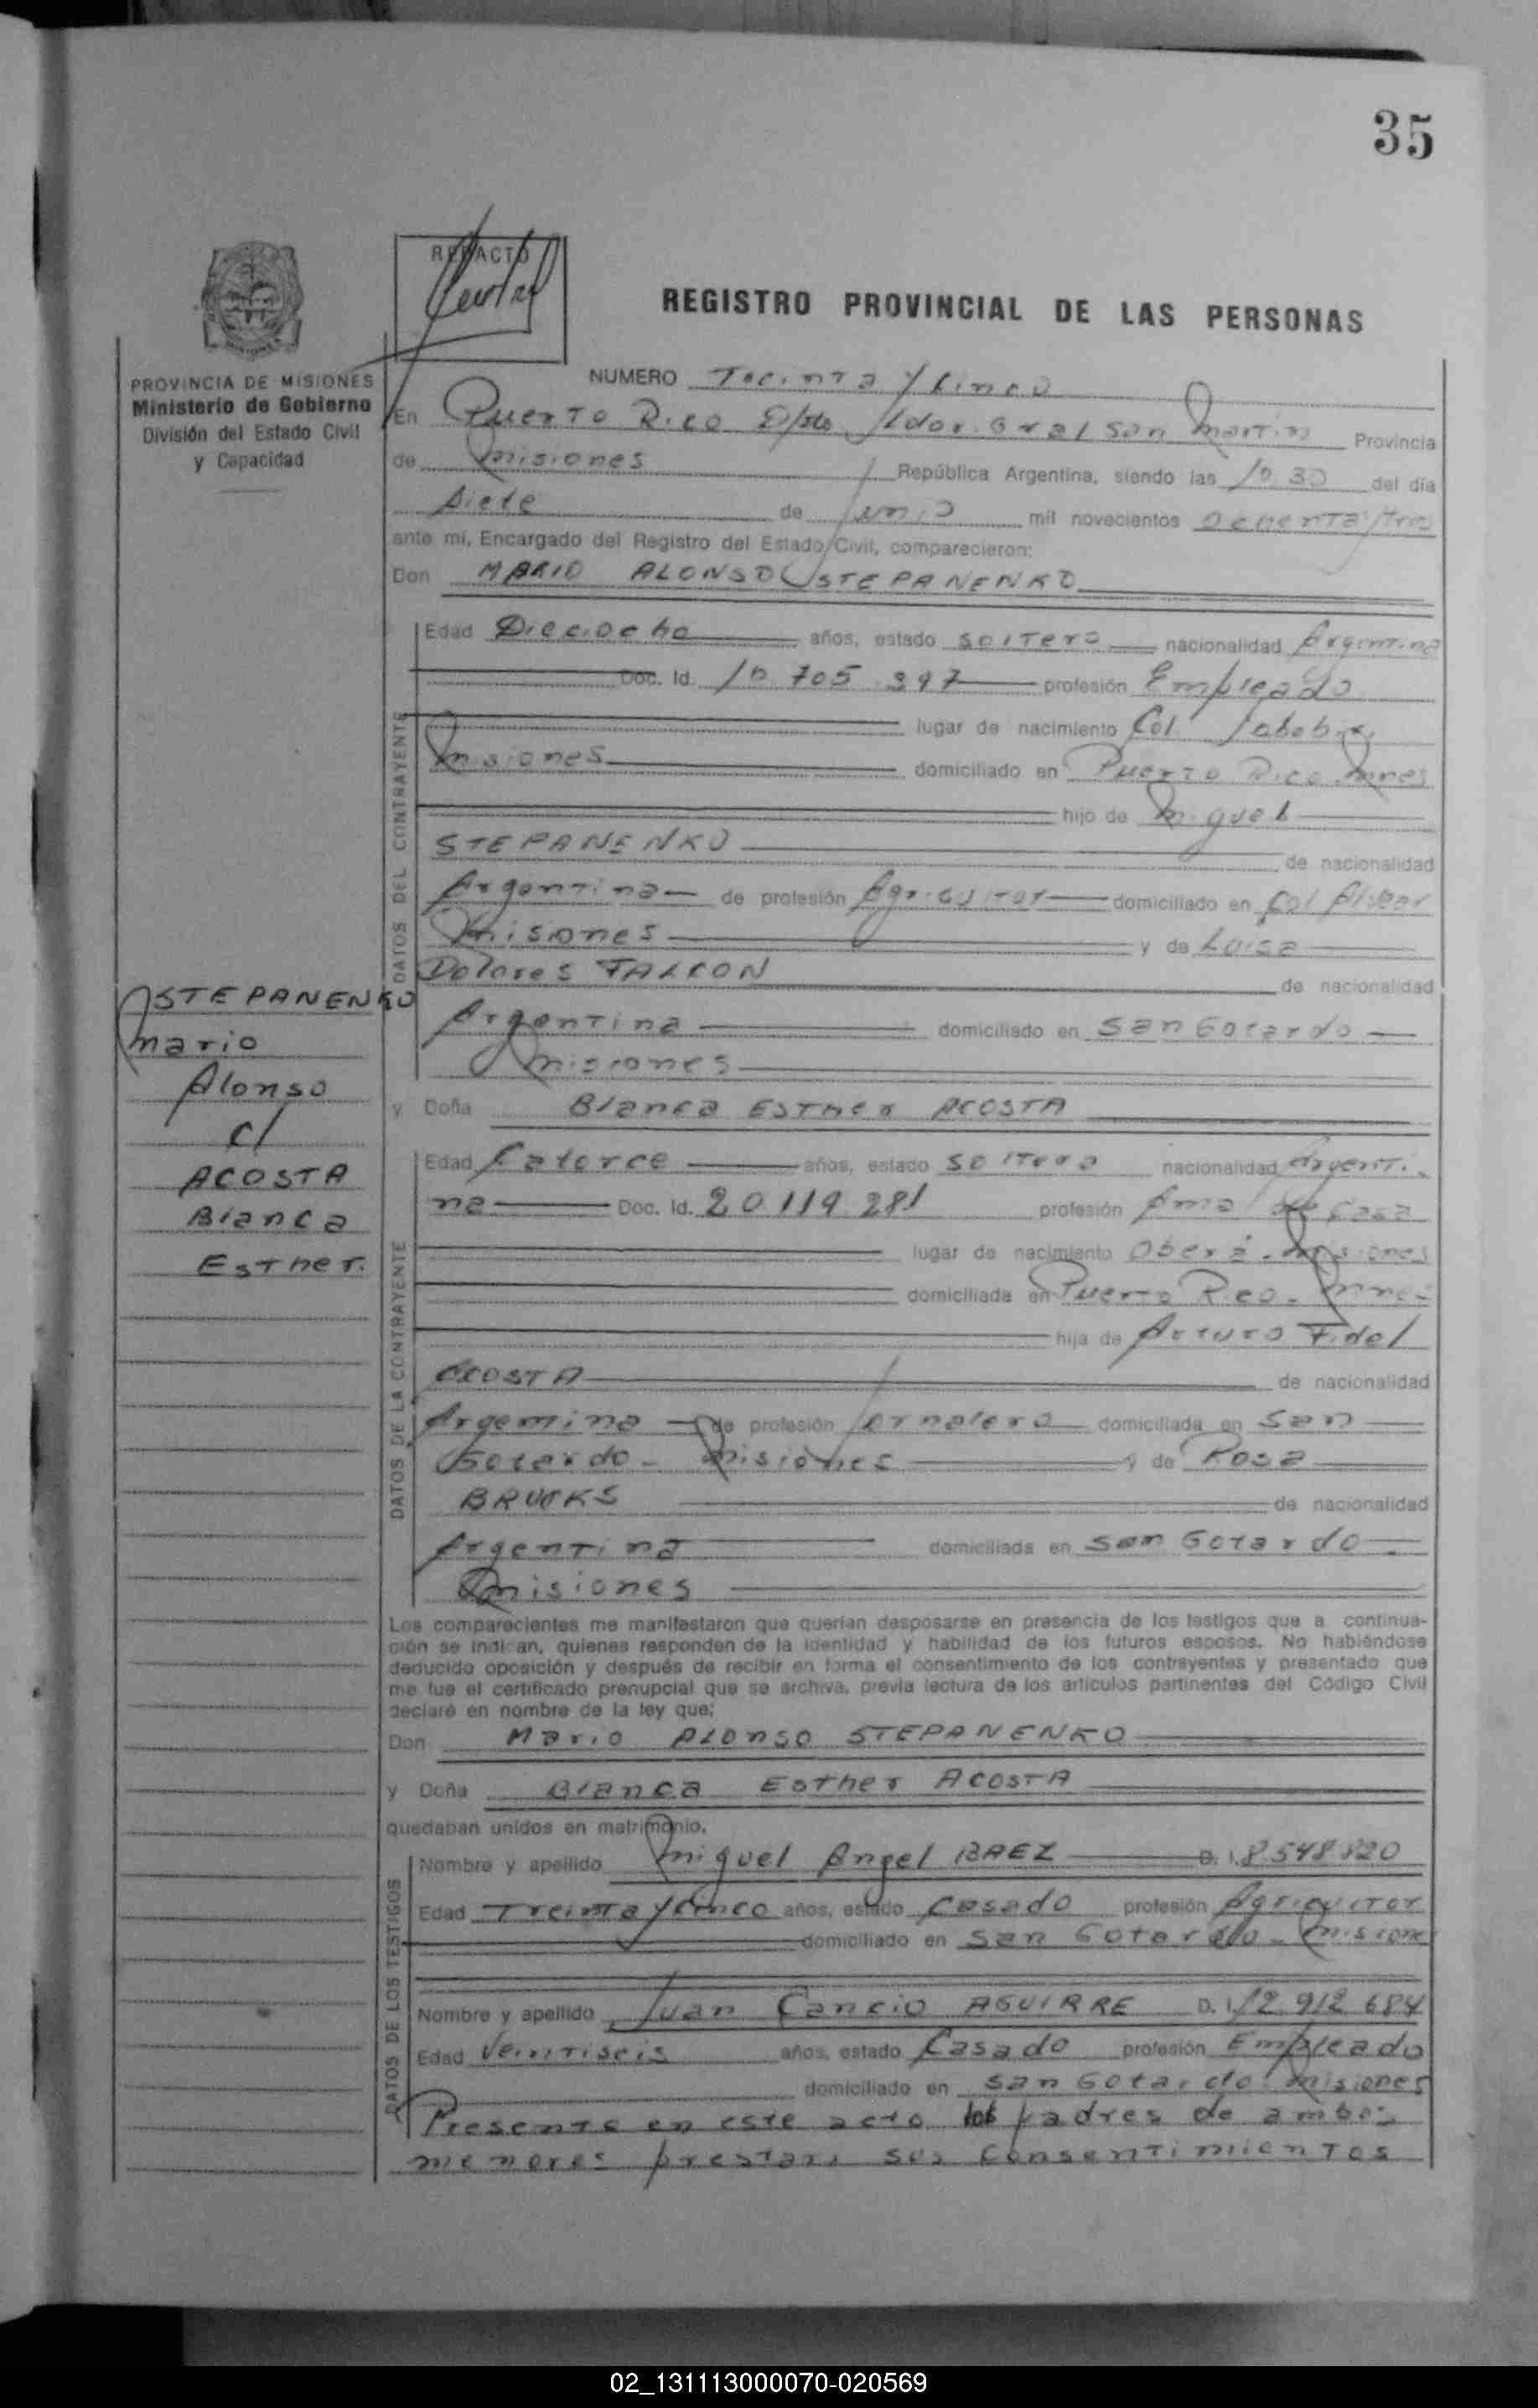 35
REPACTO
REGISTRO PROVINCIAL DE LAS PERSONAS
PROVINCIA DE MISIONES
Ministerio de Gobierno
División del Estado Civil
y Capacidad
NUMERO Treinta y Cinco
En Puerto Rico Dpto Ldor. Gral San Martin Provincia
de Misiones República Argentina, siendo las 10,30 del día
Siete de Junio mil novecientos ochenta y tres
ante mí, Encargado del Registro del Estado Civil, comparecieron:
Don MARIO ALONSO STEPANENKO
DATOS DEL CONTRAYENTE
Edad Dieciocho años, estado soltero nacionalidad Argentina
Doc. Id. 705 397 profesión Empleado
lugar de nacimiento Col.
Misiones domiciliado en Puerto Rico. Mnes
hijo de Miguel
STEPANENKO de nacionalidad
Argentina de profesión Agricultor domiciliado en Col Alvear
Misiones y de Luisa
Dolores FALCON de nacionalidad
Argentina domiciliado en San Gotardo
Misiones
STEPANENKO
Mario
Alonso
c/
ACOSTA
Blanca
Esther.
y Doña Blanca Esther ACOSTA
DATOS DE LA CONTRAYENTE
Edad Catorce años, estado soltera nacionalidad Argenti-
na Doc. Id. 20 119 281 profesión Ama de Casa
lugar de nacimiento Oberá. Misiones
domiciliada en Puerto Rico. Mnes
hija de Arturo Fidel
ACOSTA de nacionalidad
Argentina de profesión Jornalero domiciliada en San
Gotardo - Misiones y de Rosa
BRUCKS de nacionalidad
Argentina domiciliada en San Gotardo
Misiones
Los comparecientes me manifestaron que querían desposarse en presencia de los testigos que a continua-
ción se indican, quienes responden de la identidad y habilidad de los futuros esposos. No habiéndose
deducido oposición y después de recibir en forma el consentimiento de los contrayentes y presentado que
me fue el certificado prenupcial que se archiva, previa lectura de los artículos pertinentes del Código Civil
declaré en nombre de la ley que:
Don Mario Alonso STEPANENKO
y Doña Blanca Esther ACOSTA
quedaban unidos en matrimonio.
DATOS DE LOS TESTIGOS
Nombre y apellido Miguel Angel BAEZ D. I. 8 548 820
Edad Treinta y Cinco años, estado Casado profesión Agricultor
domiciliado en San Gotardo - Misione
Nombre y apellido Juan Cancio AGUIRRE D. I. 12 912 684
Edad Veintiseis años, estado Casado profesión Empleado
domiciliado en San Gotardo. Misiones
Presente en este acto los padres de ambos
menores prestan sus Consentimientos
02_131113000070-020569